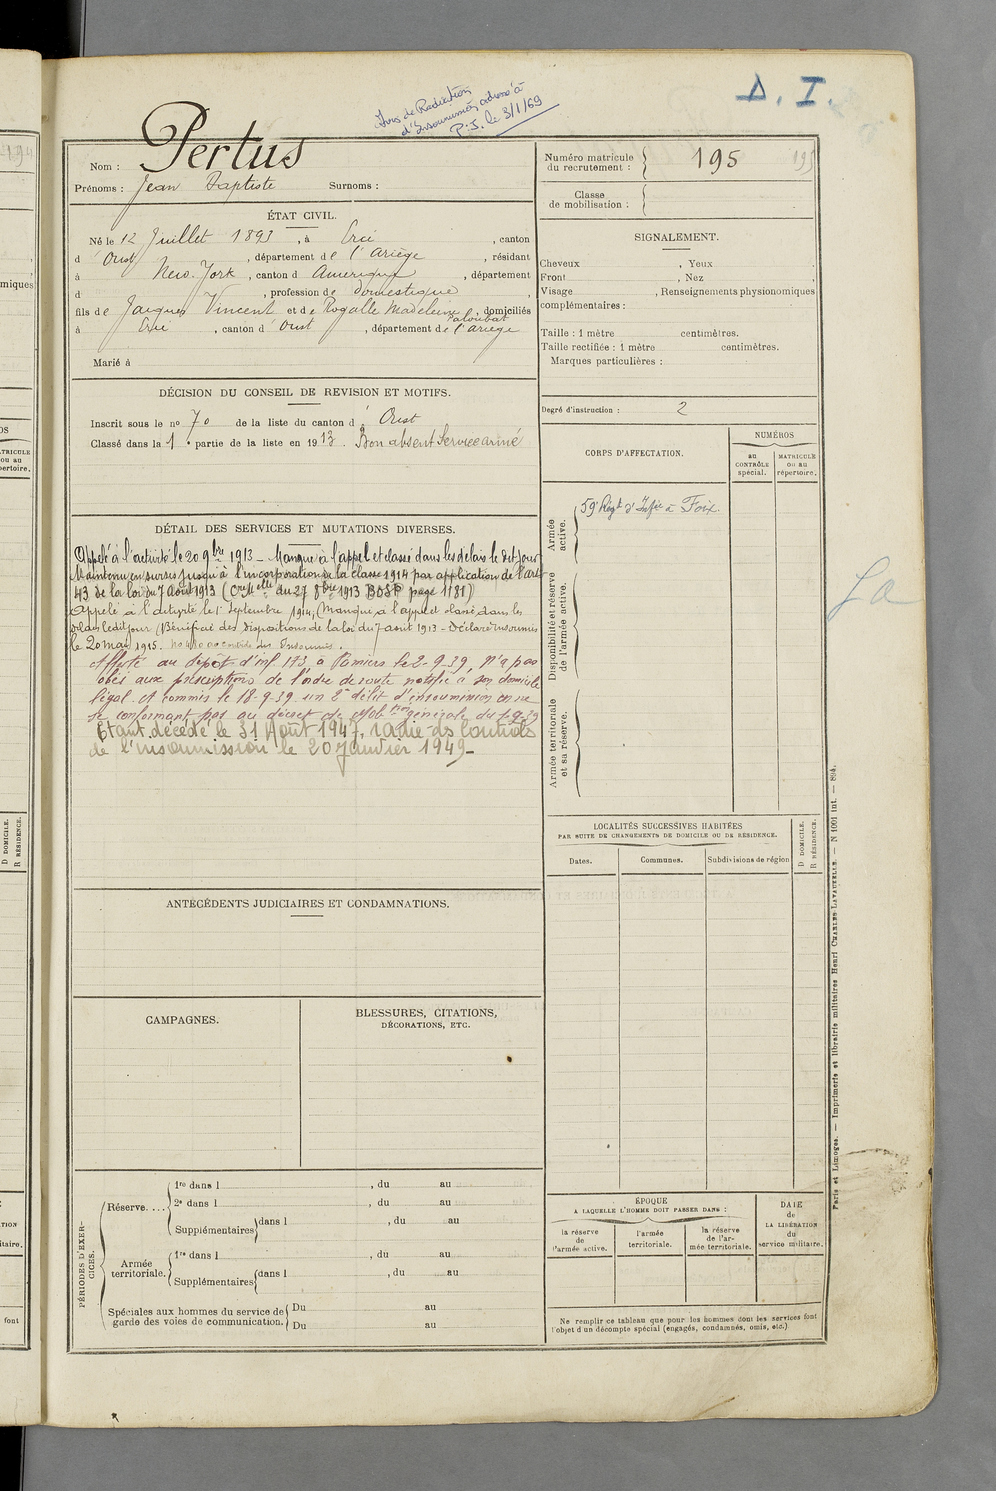 D. I.
Avis de Radiation
d'Insoumission adressé à
P.J. le 3/1/69
Nom : Pertus
Prénoms : Jean Baptiste Surnoms :
ÉTAT CIVIL.
Né le 12 Juillet 1893, à Ercé, canton
d'Oust, département de l'Ariège, résidant
à New-York, canton d Amérique, département
d , profession de domestique,
fils de Jacques Vincent et de Rogalle Madeleine, domiciliés
à Ercé, canton d'Oust, département de l'ariège
Marié à
DÉCISION DU CONSEIL DE REVISION ET MOTIFS.
Inscrit sous le no 70 de la liste du canton d' Oust
Classé dans la 1e partie de la liste en 1913. Bon absent Service armé
DÉTAIL DES SERVICES ET MUTATIONS DIVERSES.
Appelé à l'activité le 20 9bre 1913 - Manque à l'appel et classé dans les délais le dit jour
Maintenu en sursis jusqu'à l'incorporation de la classe 1914 par application de l'art
43 de la loi du 7 Août 1913 (Cre Mlle du 27 8bre 1913 BOSP page 1181)
Appelé à l'activité le 1er Septembre 1914, (Manque à l'appel et classé dans les
délais ledit jour (Bénéficié des dispositions de la loi du 7 août 1913 - Déclaré insoumis
le 20 mai 1915. contrôle des Insoumis.
Affecté au dépôt d'inf. 173 à Pamiers le 2-9-39, N'a pas
obéi aux prescriptions de l'ordre de route notifié à son domicile
légal. A commis le 18-9-39 un 2e délit d'insoumission en ne
se conformant pas au décret de Mobtion générale du 1-9-39
Etant décédé le 31 Août 1947, radié des Contrôles
de l'insoumission le 20 Janvier 1949-
ANTÉCÉDENTS JUDICIAIRES ET CONDAMNATIONS.
CAMPAGNES.
BLESSURES, CITATIONS,
DÉCORATIONS, ETC.
PÉRIODES D'EXERCICES.
Réserve....
1re dans l , du au
2e dans l , du au
Supplémentaires dans l , du au
Armée
territoriale.
1re dans l , du au
Supplémentaires dans l , du au
Spéciales aux hommes du service de
garde des voies de communication.
Du au
Du au
Numéro matricule
du recrutement : 195
195
Classe
de mobilisation :
SIGNALEMENT.
Cheveux , Yeux
Front , Nez
Visage , Renseignements physionomiques
complémentaires :
Taille : 1 mètre centimètres.
Taille rectifiée : 1 mètre centimètres.
Marques particulières :
Degré d'instruction : 2
CORPS D'AFFECTATION.
NUMÉROS
au
CONTRÔLE
spécial.
MATRICULE
ou au
répertoire.
Armée
active.
59e Régt d'Infie à Foix.
Disponibilité et réserve
de l'armée active.
Armée territoriale
et sa réserve.
LOCALITÉS SUCCESSIVES HABITÉES
PAR SUITE DE CHANGEMENTS DE DOMICILE OU DE RÉSIDENCE.
Dates.
Communes.
Subdivisions de région
D DOMICILE.
R RÉSIDENCE.
ÉPOQUE
A LAQUELLE L'HOMME DOIT PASSER DANS :
la réserve
de
l'armée active.
l'armée
territoriale.
la réserve
de l'ar-
mée territoriale.
DATE
de
LA LIBÉRATION
du
service militaire.
Ne remplir ce tableau que pour les hommes dont les services font
l'objet d'un décompte spécial (engagés, condamnés, omis, etc.)
Paris et Limoges. — Imprimerie et librairie militaires Henri CHARLES-LAVAUZELLE. — N 1001 int. — 894.